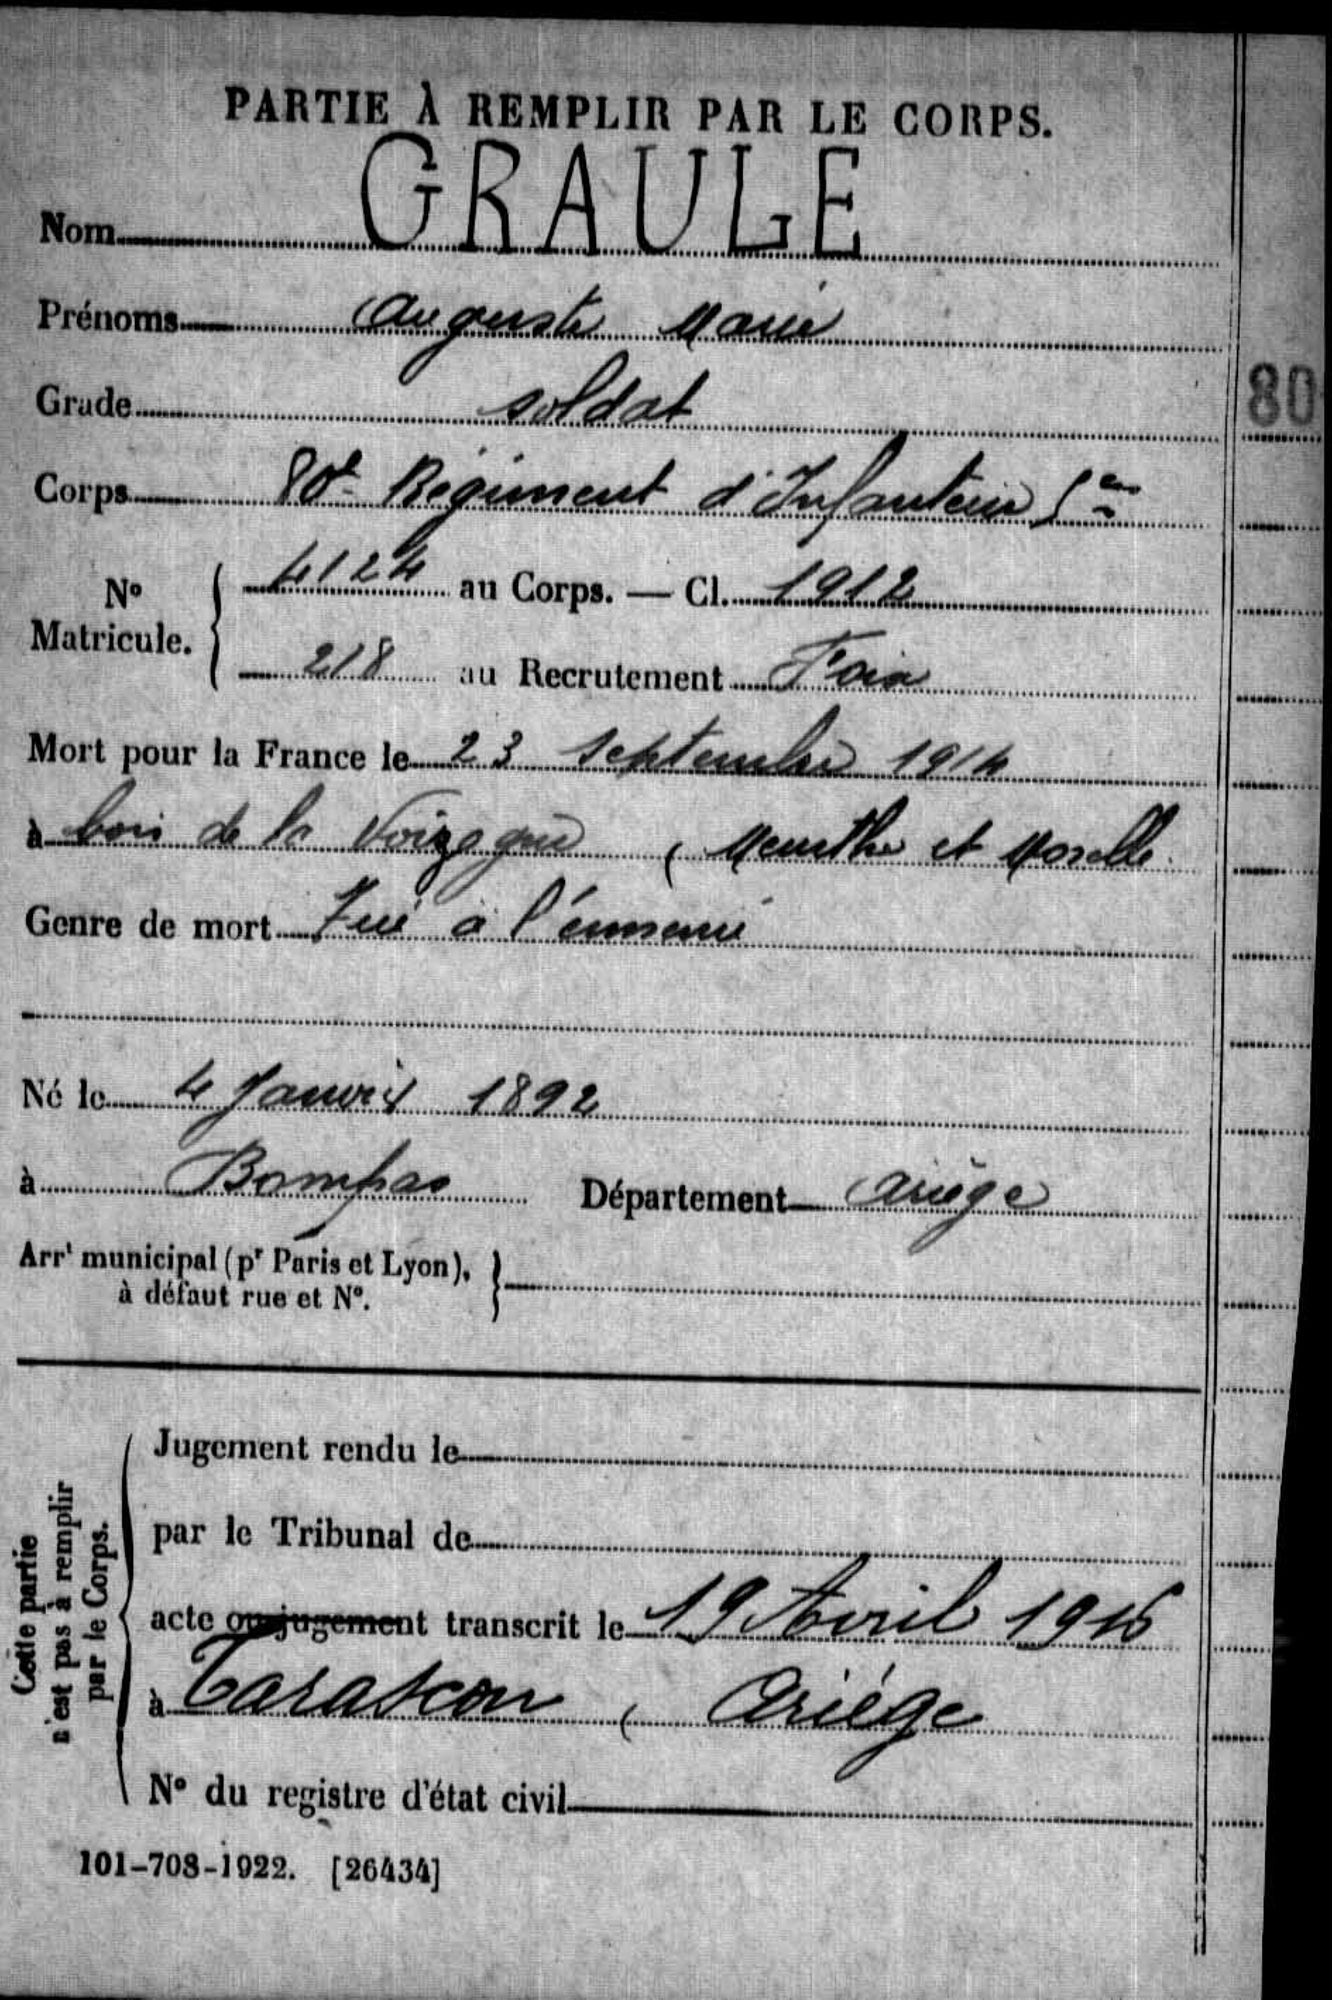 PARTIE À REMPLIR PAR LE CORPS.
Nom GRAULE
Prénoms Auguste Marie
Grade soldat
80
Corps 80e Régiment d'Infanterie
N° Matricule. 4124 au Corps. — Cl. 1912
218 au Recrutement Foix
Mort pour la France le 23 septembre 1914
à bois de la Voizogne ( Meurthe et Moselle
Genre de mort Tué à l'ennemi
Né le 4 Janvier 1892
à Bompas Département Ariège
Arrt municipal (pr Paris et Lyon),
à défaut rue et N°.
Cette partie
n'est pas à remplir
par le Corps.
Jugement rendu le
par le Tribunal de
acte ou jugement transcrit le 19 Avril 1916
à Tarascon ( Ariége
N° du registre d'état civil
101-708-1922. [26434]